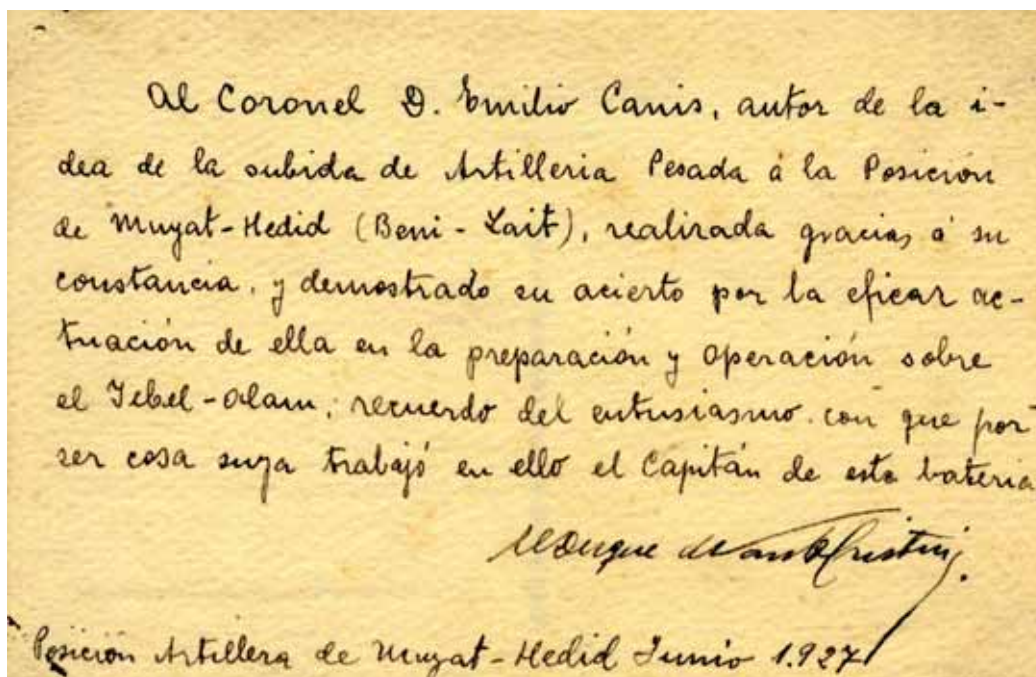 Al Coronel D. Emilio Canis, autor de la i-
dea de la subida de Artilleria Pesada á la Posición
de Muyat-Hedid (Beni-Lait), realizada gracias á su
constancia, y demostrado su acierto por la eficaz ac-
tuación de ella en la preparación y operación sobre
el Yebel-Alam; recuerdo del entusiasmo con que por
ser cosa suya trabajó en ello el Capitán de esta bateria
El Duque de Santa Cristina.
Posición Artillera de Muyat-Hedid Junio 1.927